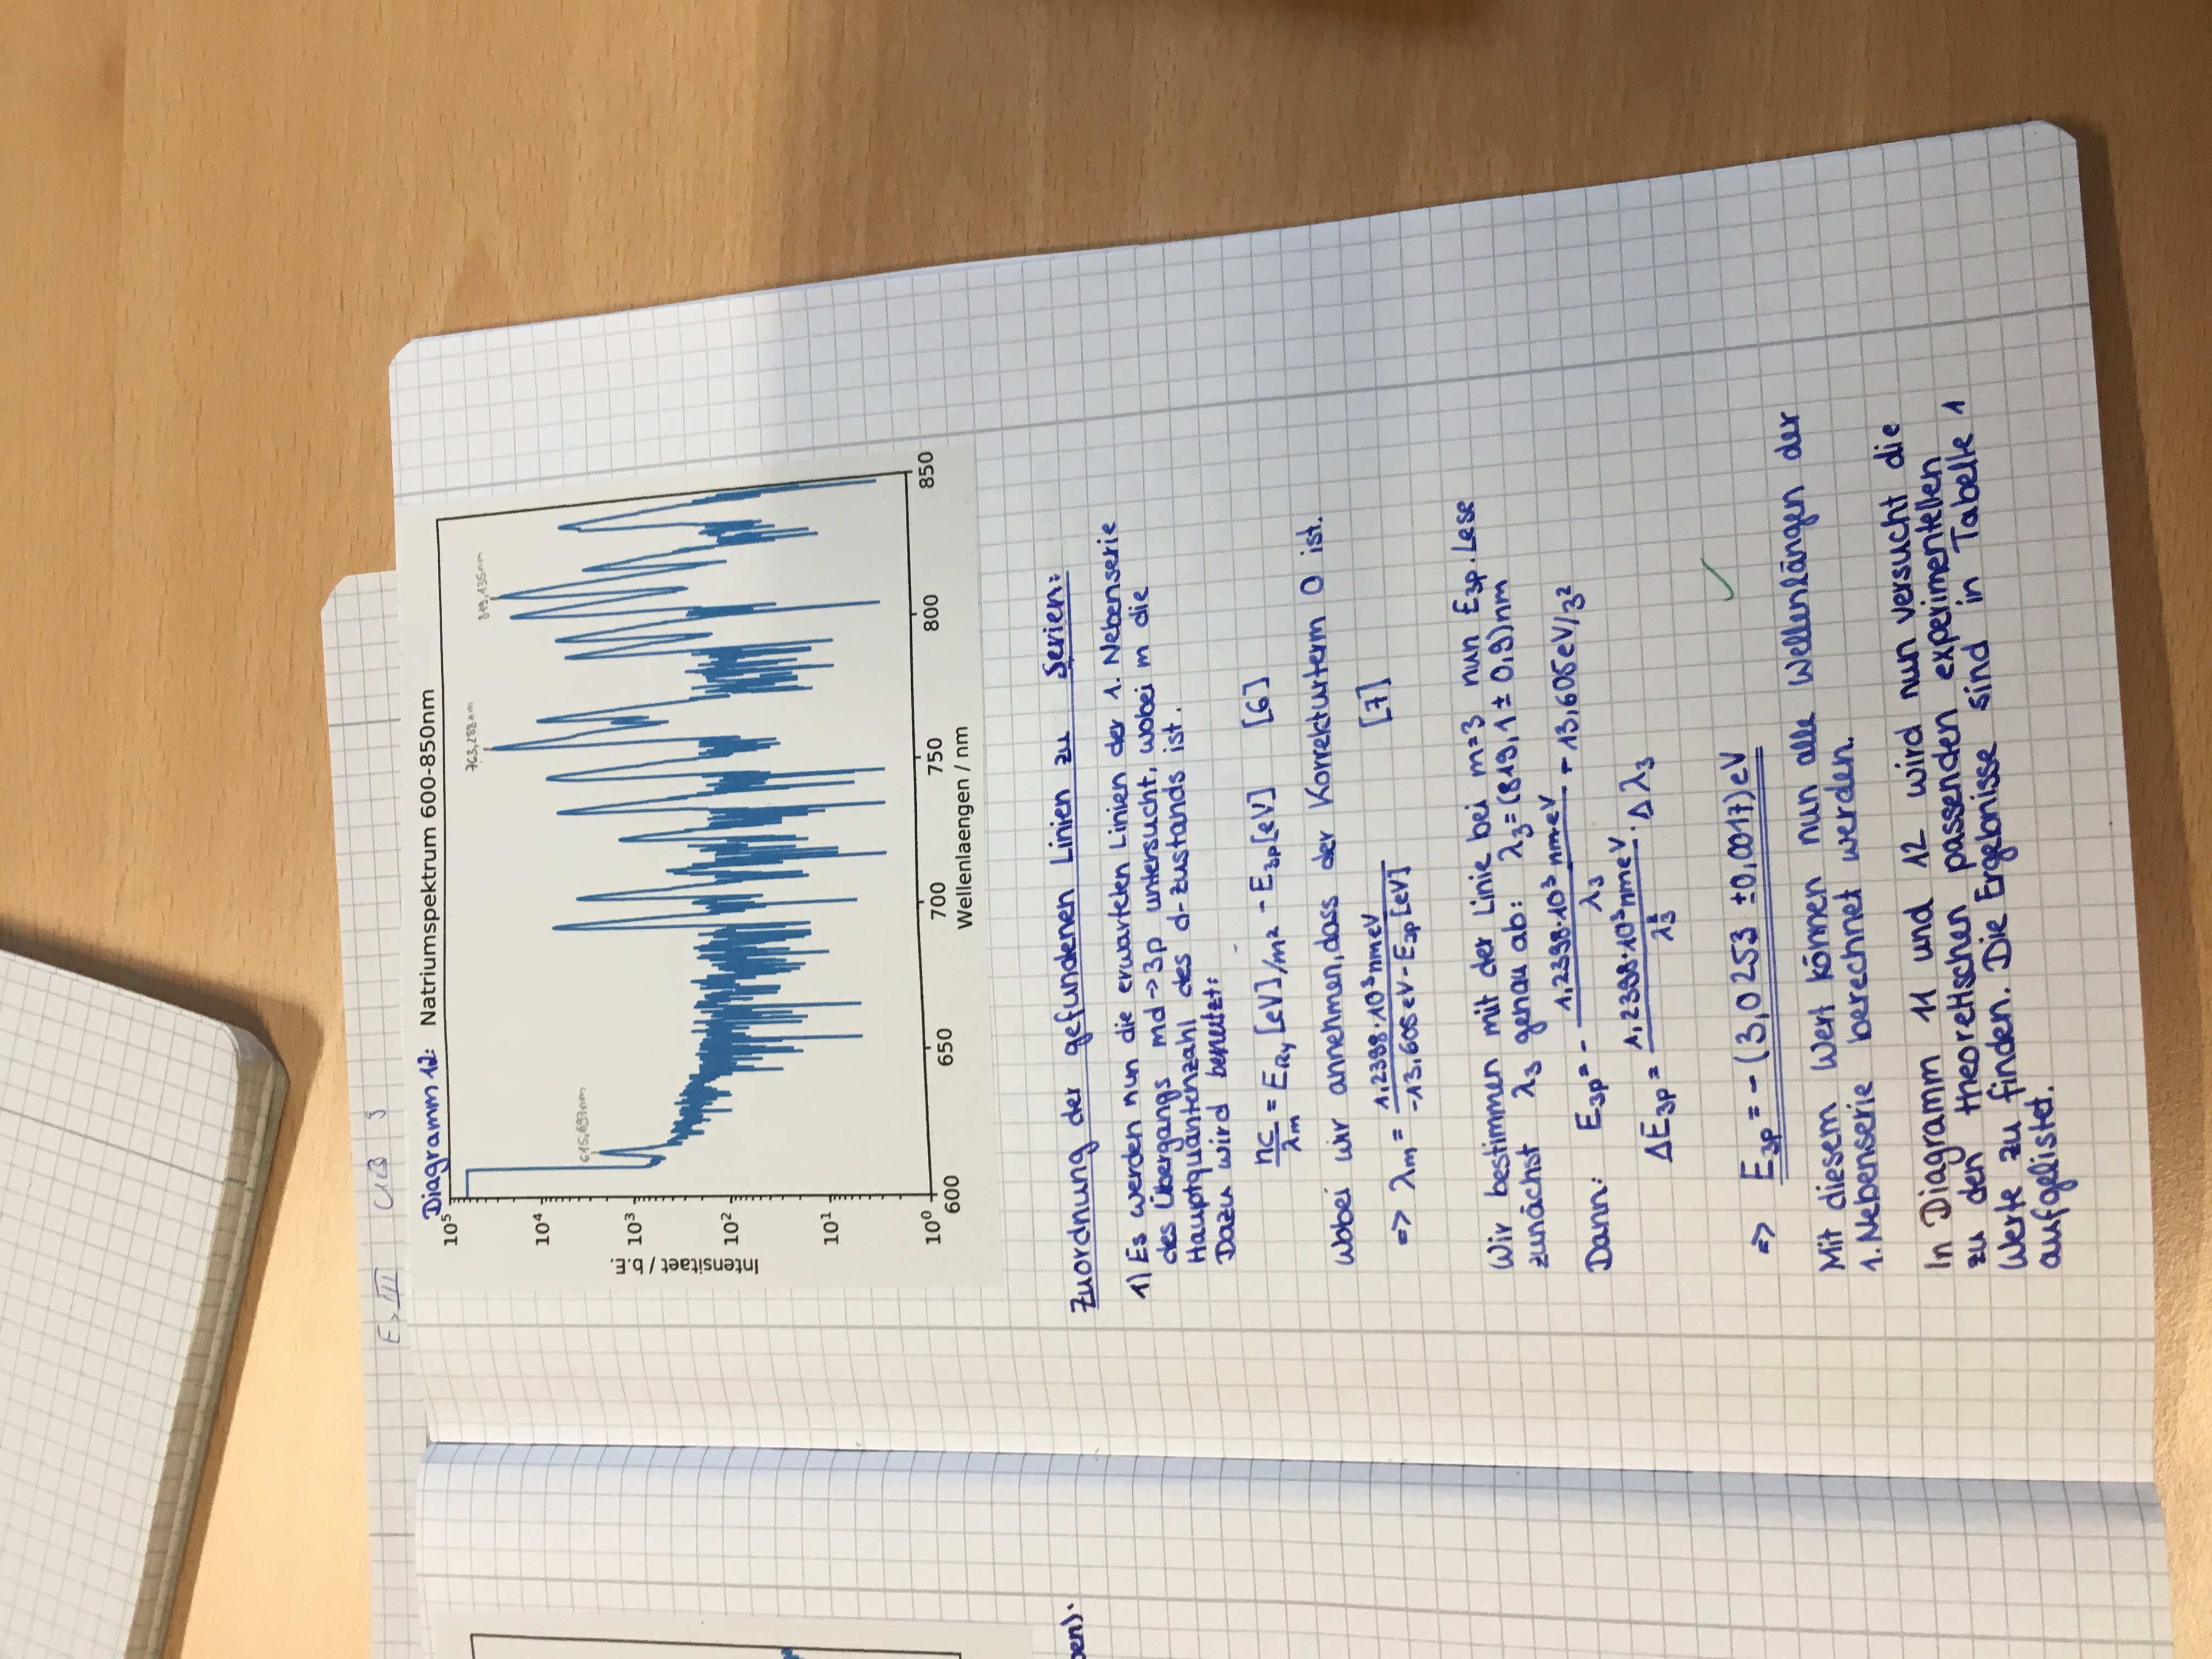 E> III UB 3
Diagramm 12: Natriumspektrum 600-850nm
763,288nm
819,135nm
615,697nm
Intensitaet / b.E.
10⁵
10⁴
10³
10²
10¹
10⁰
600 650 700 750 800 850
Wellenlaengen / nm
ben).
Zuordnung der gefundenen Linien zu Serien:
1) Es werden nun die erwarteten Linien der 1. Nebenserie
des Übergangs md→3p untersucht, wobei m die
Hauptquantenzahl des d-zustands ist.
Dazu wird benutzt:
hc/λm = E_Ry [eV]/m² - E3p[eV] [6]
Wobei wir annehmen, dass der Korrekturterm 0 ist.
=> λm = 1,2398·10³nmeV / -13,605eV-E3p[eV] [7]
Wir bestimmen mit der Linie bei m=3 nun E3p. Lese
zunächst λ3 genau ab: λ3=(819,1 ± 0,9)nm
Dann: E3p = - 1,2398·10³ nmeV / λ3 - 13,605eV/3²
ΔE3p = 1,2398·10³nmeV / λ3² · Δλ3
=> E3p = -(3,0253 ±0,0017)eV
Mit diesem Wert können nun alle Wellenlängen der
1. Nebenserie berechnet werden.
In Diagramm 11 und 12 wird nun versucht die
zu den theoretischen passenden experimentellen
Werte zu finden. Die Ergebnisse sind in Tabelle 1
aufgelistet.